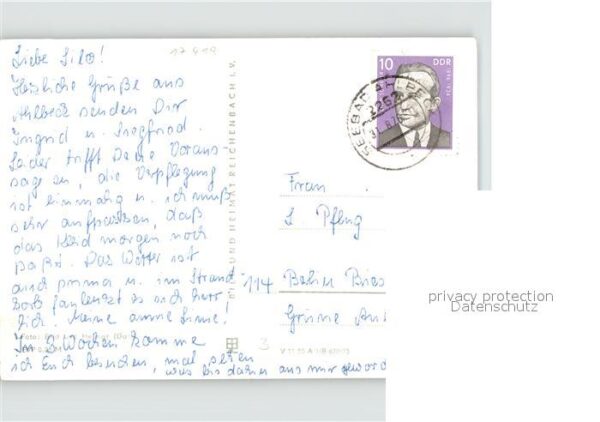 17 9 19
Liebe Lilo!
Herzliche Grüße aus
Ahlbeck senden Dir
Ingrid u. Siegfried.
Leider trifft Deine Voraus-
sage ein, die Verpflegung
ist einmalig u. ich muß
sehr aufpassen, daß
das Kleid morgen noch
paßt. Das Wetter ist
auch prima u. im Strand-
korb faulenzt es sich herr-
lich. Meine arme Linie!
In 3 Wochen komme
ich Euch besuchen, mal sehen
was bis dahin aus mir geword
BILD UND HEIMAT REICHENBACH I. V.
10 DDR
SEEBAD AHLBECK
2252
Frau
L. Pflug
114 Berlin Bies
Grüne Au
3
privacy protection
Datenschutz